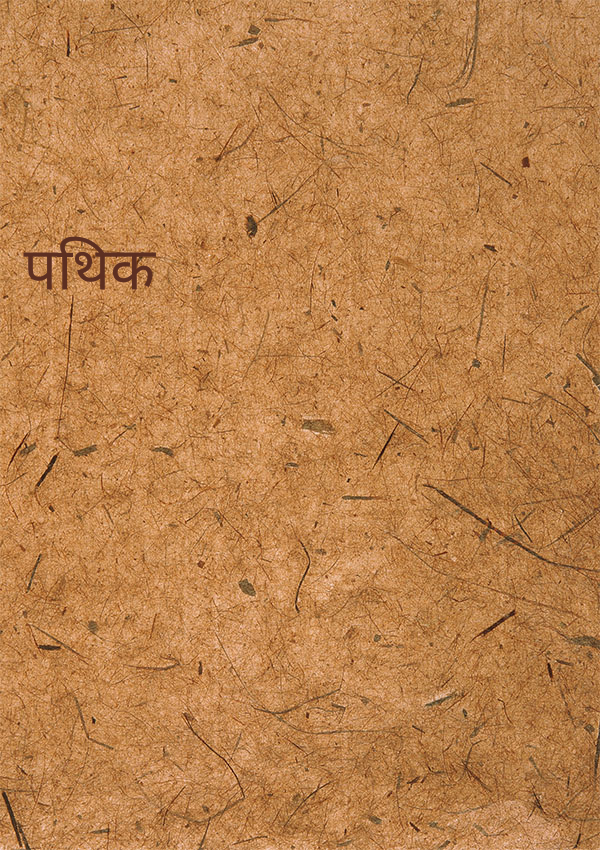 पथिक